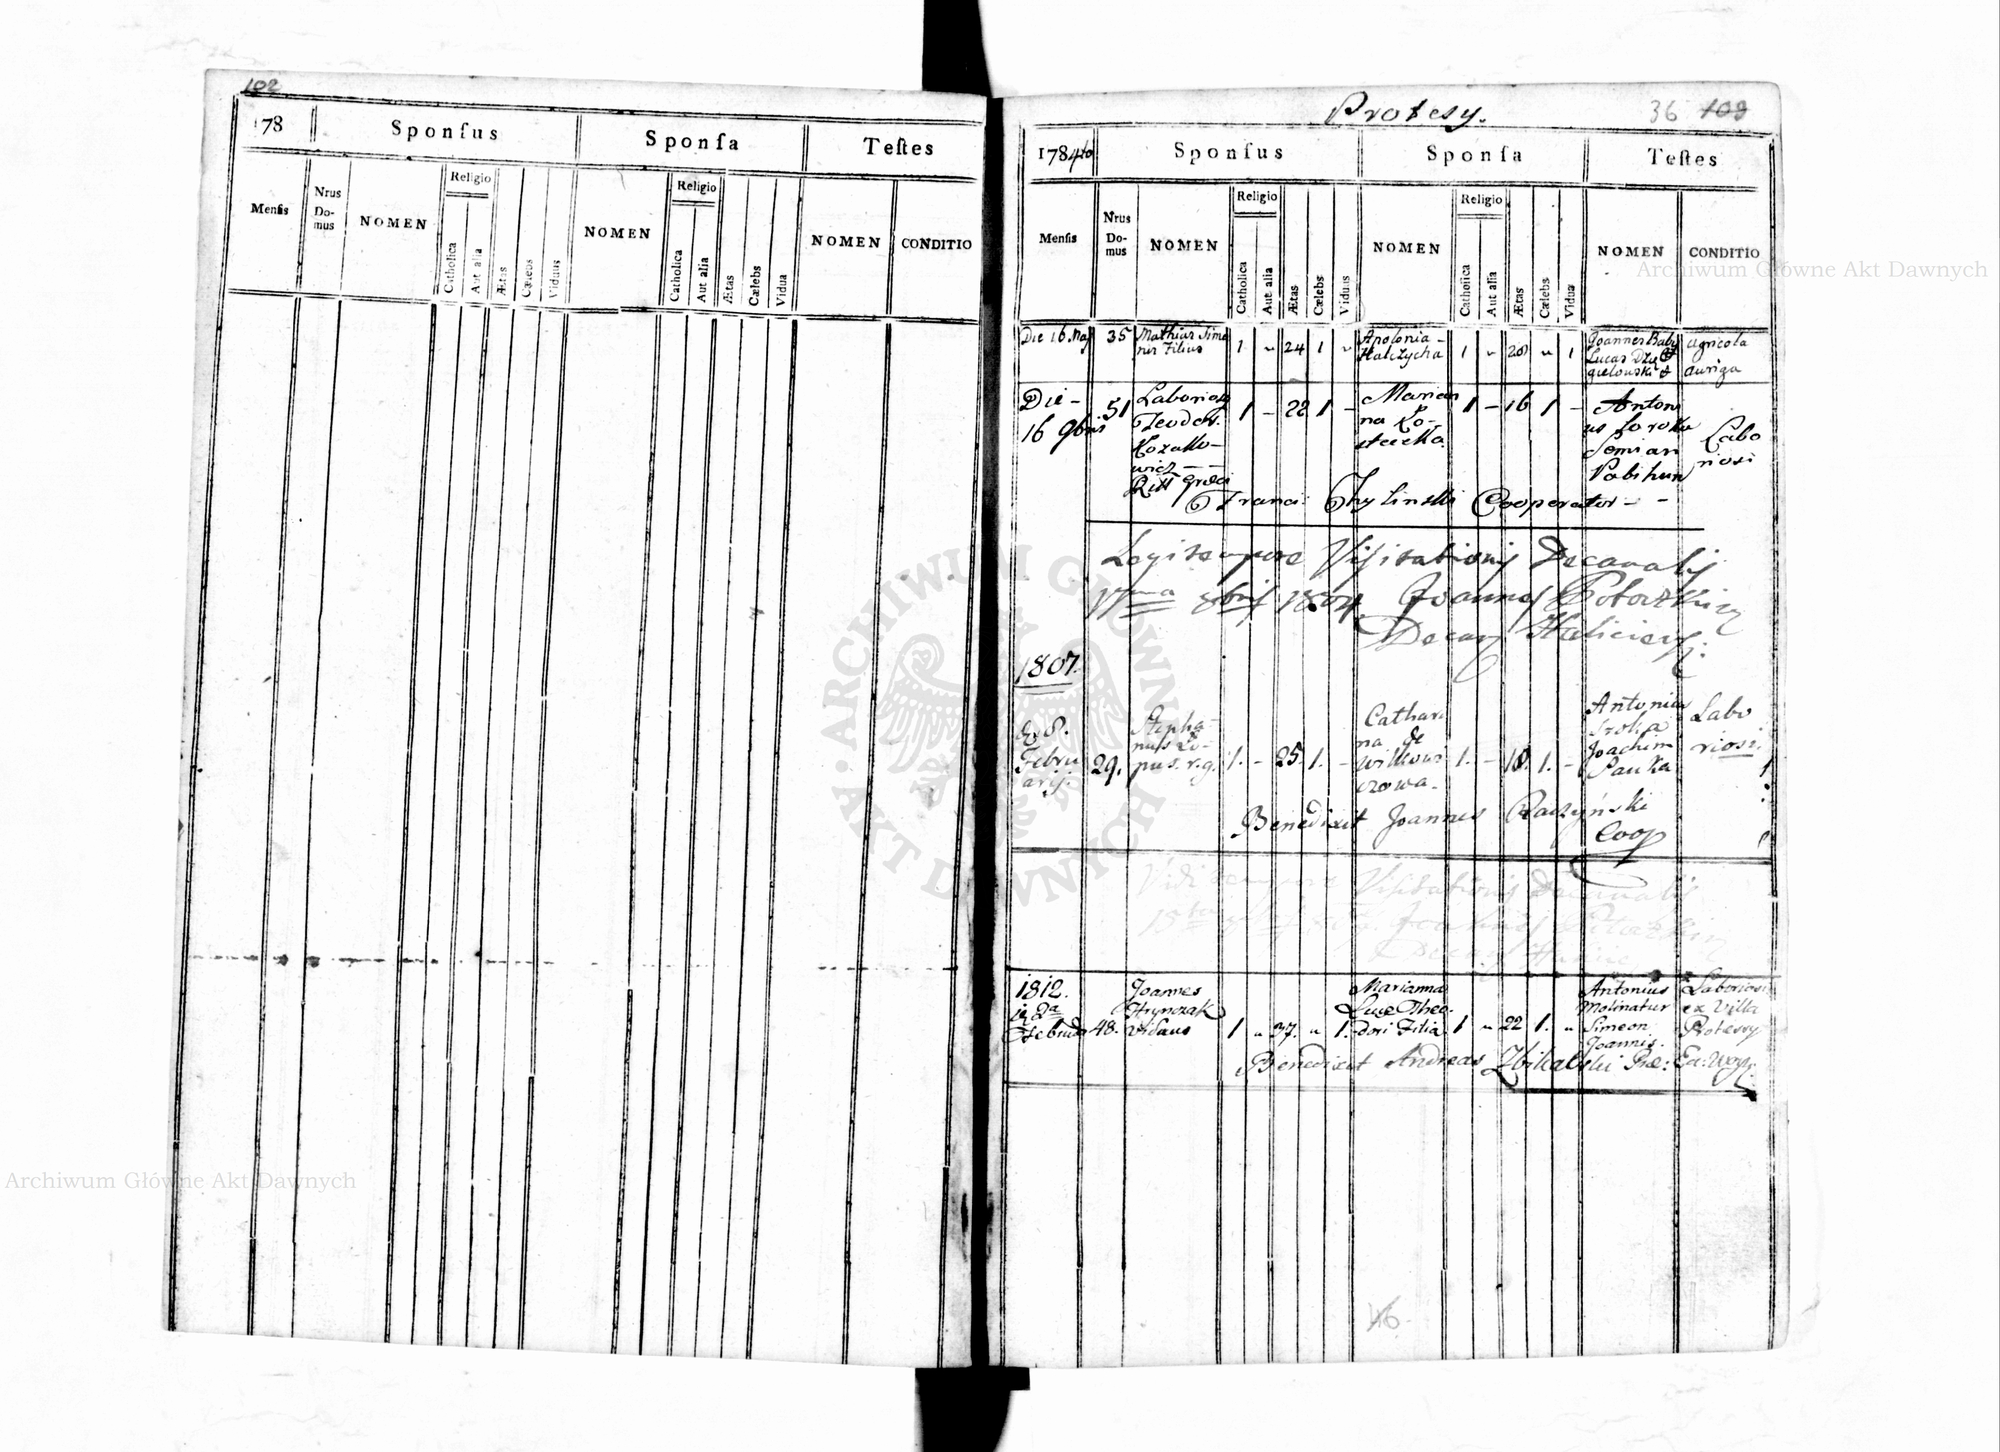 102
178
Sponſus
Sponſa
Teſtes
Menſis
Nrus Do-mus
NOMEN
Religio
Catholica
Aut alia
Ætas
Cælebs
Viduus
NOMEN
Religio
Catholica
Aut alia
Ætas
Cælebs
Vidua
NOMEN
CONDITIO
Protesy.
36 103
1784to
Sponſus
Sponſa
Teſtes
Menſis
Nrus Do-mus
NOMEN
Religio
Catholica
Aut alia
Ætas
Cælebs
Viduus
NOMEN
Religio
Catholica
Aut alia
Ætas
Cælebs
Vidua
NOMEN
CONDITIO
Die 16 Maj
35
Mathias Simo
nis Filius
1 " 24 1 "
Apolonia
Halczycha
1 " 20 " 1
Joannes Baby
Lucas
agricola
auriga
Die -
16 9bris
51
Laborios
Teodor.
Kozako-
wicz - -
Rit Graeci
1 - 22 1 -
Marian
na Ko-
stecka
1 - 16 1 -
Antoni
us Soroka
Semian
Pabihun
Labo
riosi
Franci: Thylinski Cooperator - -
Legi tempore Visitationis Decanalis
17ma 8bris 1804 Joannes
Decan Halicien:
1807.
8.
Febru
arij.
29.
Stepha-
nus Lo-
pus. r. g.
1. - 25 1. -
Cathari
na de
Witkowi
czowa.
1. - 18. 1. -
Antonius
Sroka
Joachim
Pauka
Labo
riosi.
Benedixit Joannes Raczyński
Coop
Vidi tempore Visitationis Decanalis
Joannes
1812.
2da
Februa
48.
Joannes
Hrynczak
Viduus
1 " 37. " 1.
Marianna
Luce Theo
dori Filia
1 " 22 1. "
Antonius
Molinatur
Simeon
Joannis.
Laboriosi
ex Villa
Protessy
Benedixit Andreas Zbikalski
46.
ARCHIWUM GŁÓWNE
AKT DAWNYCH
Archiwum Główne Akt Dawnych
Archiwum Główne Akt Dawnych